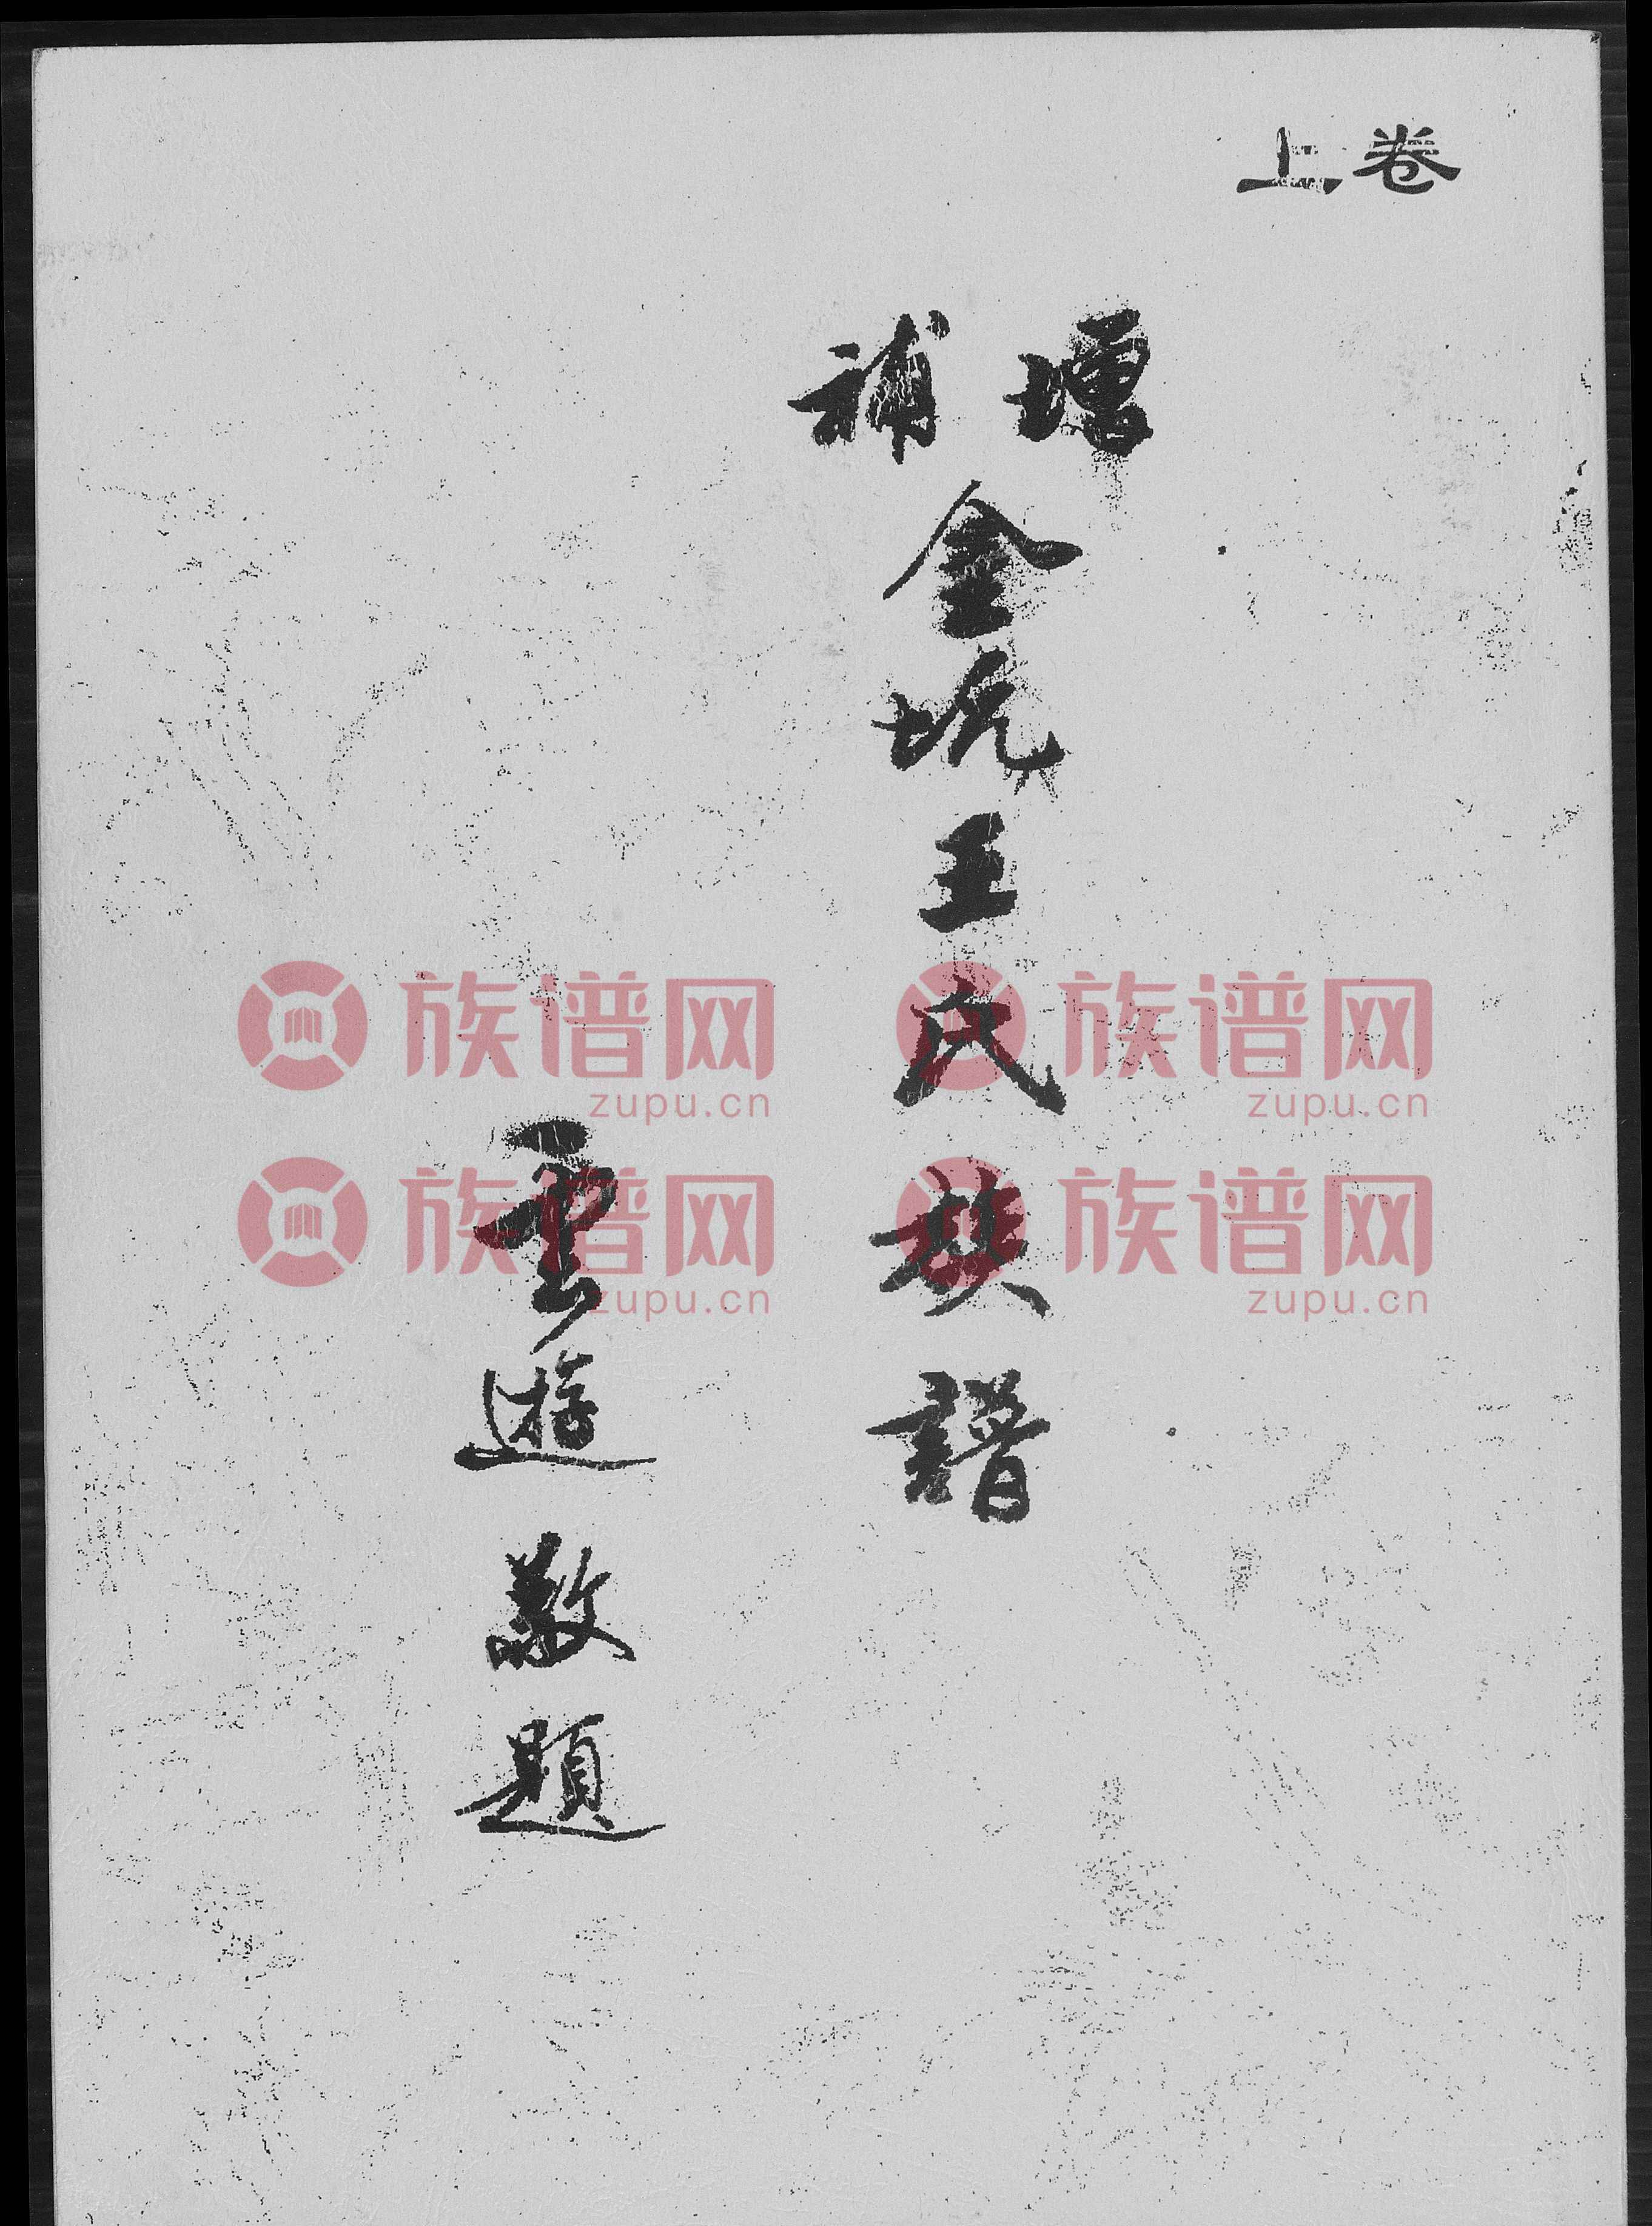 卷上
增補
金坑王氏族譜
雲遊敬題
族谱网 族谱网
zupu.cn zupu.cn
族谱网 族谱网
zupu.cn zupu.cn